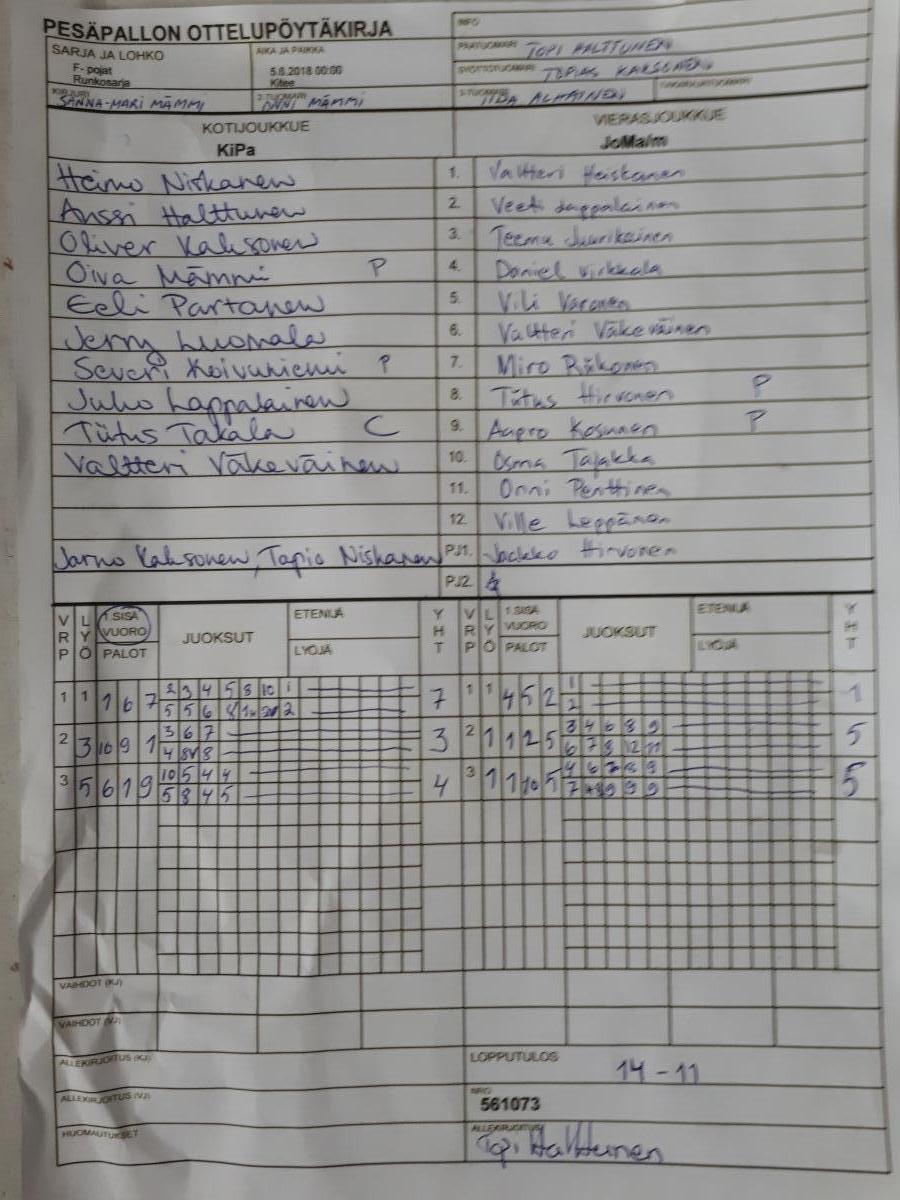 PESÄPALLON OTTELUPÖYTÄKIRJA
INFO
SARJA JA LOHKO
F- pojat
Runkosarja
AIKA JA PAIKKA
5.6.2018 00:00
Kitee
PÄÄTUOMARI TOPI HALTTUNEN
SYÖTTÖTUOMARI TOPIAS KAKSONEN
KIRJURI SANNA-MARI MÄMMI
2-TUOMARI ONNI MÄMMI
3-TUOMARI IIDA
TAKARAJATUOMARI
KOTIJOUKKUE
KiPa
VIERASJOUKKUE
JoMa/m
Heimo Niskanen 1. Valtteri Heiskanen
Anssi Halttunen 2. Veeti Lappalainen
Oliver Kaksonen 3. Teemu Juurikainen
Oiva Mämmi P 4. Daniel Virkkala
Eeli Partanen 5. Vili Varonen
Jerry Luomala 6. Valtteri Väkeväinen
Severi Koivuniemi P 7. Miro Riikonen
Juho Lappalainen 8. Tiitus Hirvonen P
Tiitus Takala C 9. Aapro Kosunen P
Valtteri Väkeväinen 10. Osma Tajakka
11. Onni Penttinen
12. Ville Leppänen
Jarno Kaksonen, Tapio Niskanen PJ1. Jaakko Hirvonen
PJ2.
VRP LYÖ 1.SISÄ VUORO PALOT JUOKSUT ETENIJÄ LYÖJÄ YHT VRP LYÖ 1.SISÄ VUORO PALOT JUOKSUT ETENIJÄ LYÖJÄ YHT
1 1 1 6 7 2 3 4 5 8 10 1 7 1 1 4 5 2 1 1
5 5 6 8 2 2
2 3 10 9 1 3 6 7 3 2 1 1 2 5 3 4 6 8 9 5
4 8 6 7 8 12 11
3 5 6 1 9 10 5 4 4 4 3 1 1 10 5 4 6 7 8 9 5
5 8 4 5 7 9 9 9
VAIHDOT (KJ)
VAIHDOT (VJ)
ALLEKIRJOITUS (KJ)
LOPPUTULOS 14 - 11
ALLEKIRJOITUS (VJ)
NRO
561073
HUOMAUTUKSET
ALLEKIRJOITUS
Topi Halttunen